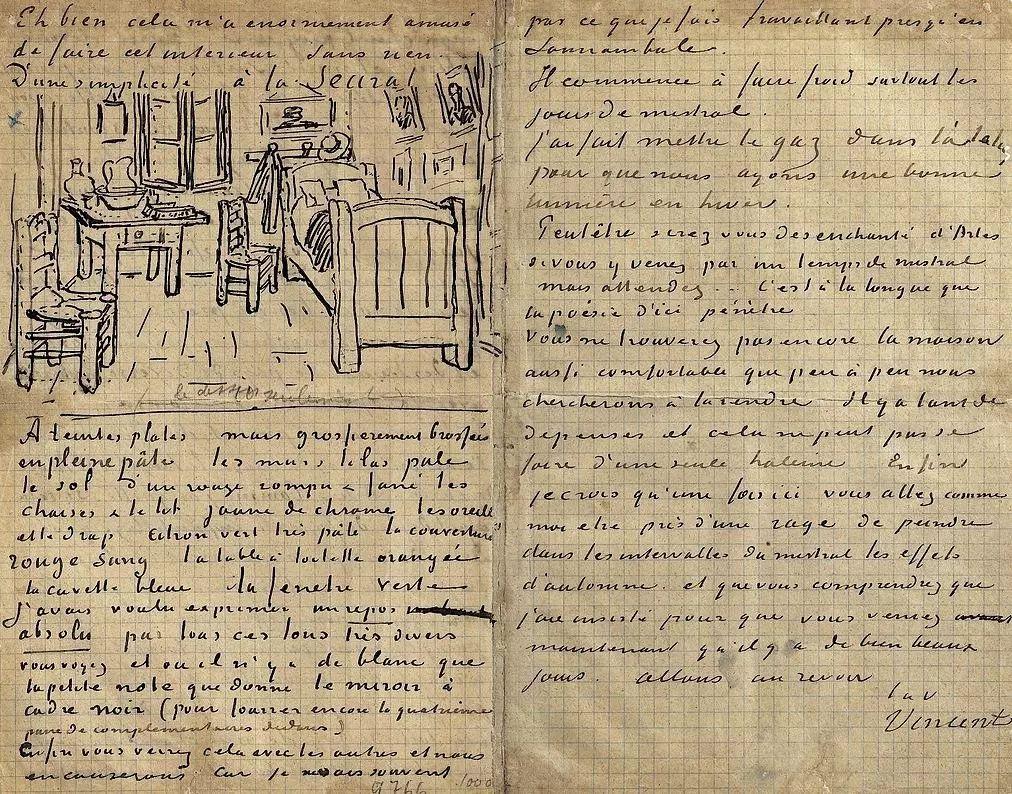 Eh bien cela m'a enormement amusé
de faire cet interieur sans rien.
D'une simplicité à la Seurat
(le dessin seulement)
À teintes plates mais grossierement brossées
en pleine pâte les murs lilas pale
le sol d'un rouge rompu & fané les
chaises & le lit jaune de chrome les oreillers
et le drap citron vert très pâle la couverture
rouge sang la table à toilette orangée
la cuvette bleue la fenetre verte
J'avais voulu exprimer un repos
absolu par tous ces tons très divers
vous voyez et où il n'y a de blanc que
la petite note que donne le miroir à
cadre noir (pour fourrer encore la quatrième
paire de complementaires dedans)
Enfin vous verrez cela avec les autres et nous
en causerons car je ne sais souvent
9766 1000
pas ce que je fais travaillant presqu'en
somnambule.
Il commence à faire froid surtout les
jours de mistral.
J'ai fait mettre le gaz dans l'atelier
pour que nous ayons une bonne
lumière en hiver.
Peutêtre serez vous desenchanté d'Arles
si vous y venez par un temps de mistral
mais attendez... C'est à la longue que
la poésie d'ici pénètre
Vous ne trouverez pas encore la maison
aussi comfortable que peu à peu nous
chercherons à la rendre Il y a tant de
depenses et cela ne peut pas se
faire d'une seule haleine Enfin
je crois qu'une fois ici vous allez comme
moi etre pris d'une rage de peindre
dans les intervalles du mistral les effets
d'automne. et que vous comprendrez que
j'aie insisté pour que vous veniez
maintenant qu'il y a de bien beaux
jours. Allons au revoir
t. à v.
Vincent